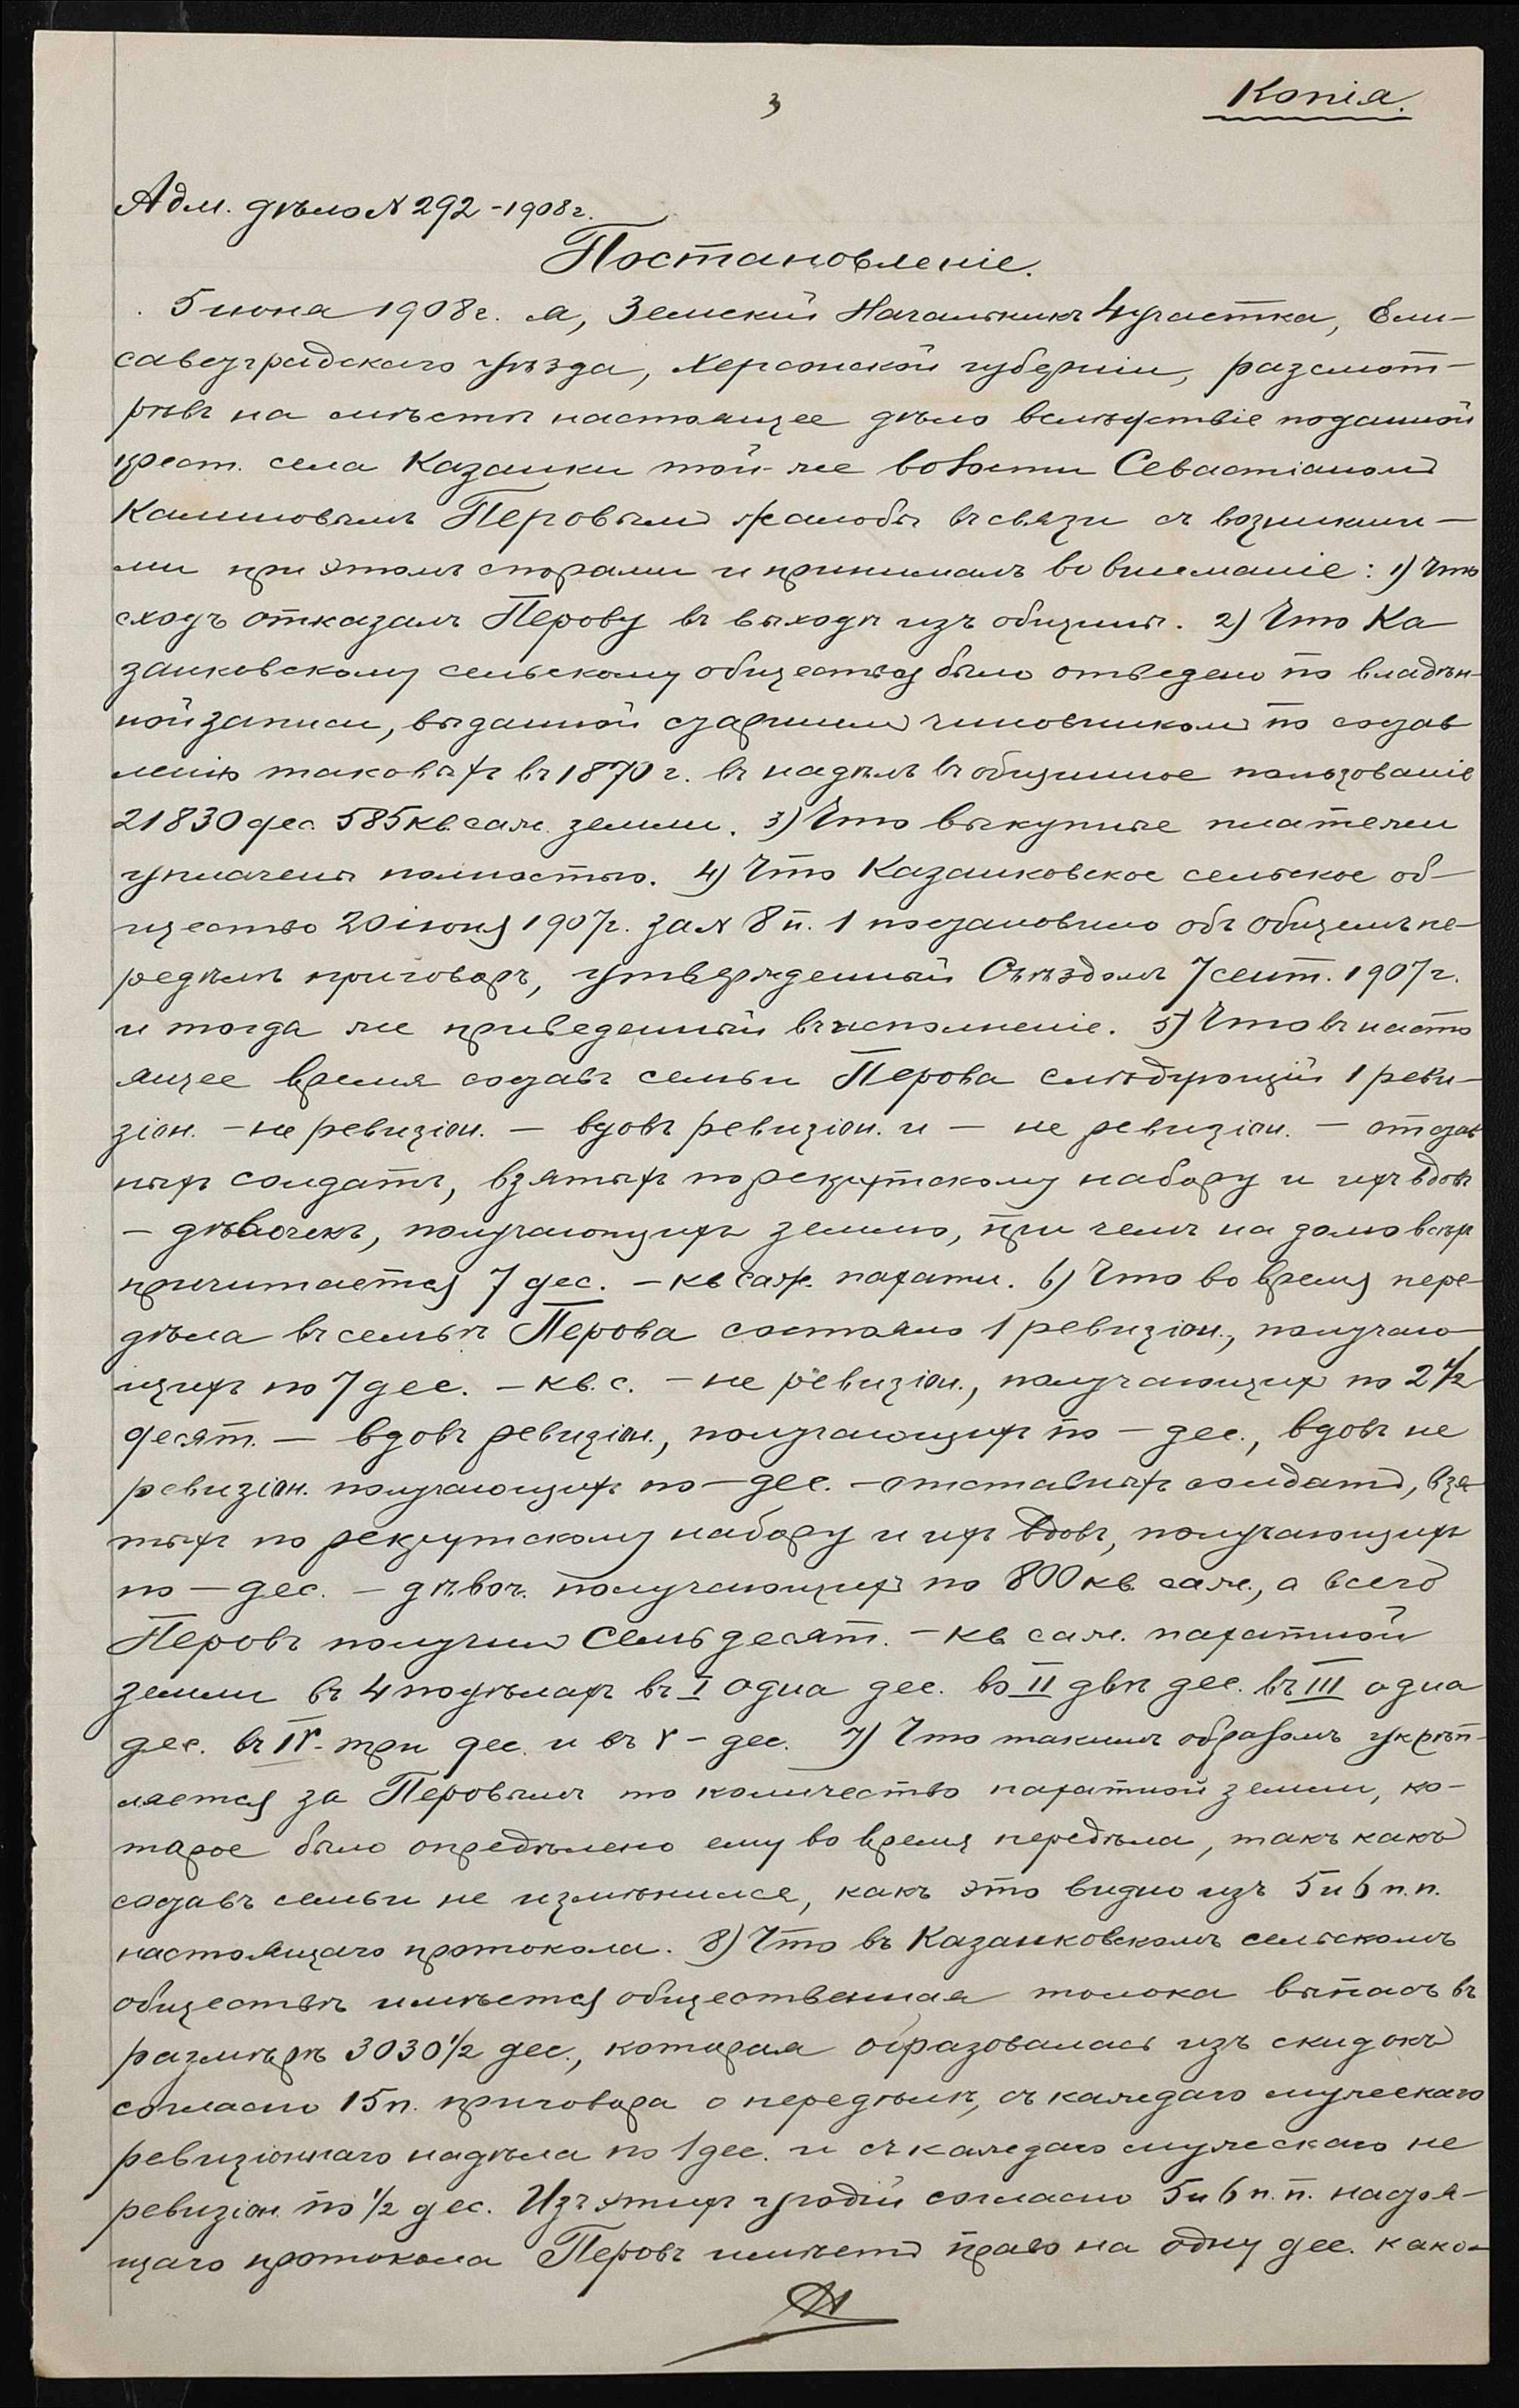 3
Копія.
Адм. дѣло № 292 - 1908 г.
Постановленіе.
5 июня 1908 г. я, Земскій Начальникъ 4 участка, Ели-
саветградскаго уѣзда, Херсонской губерніи, разсмот-
рѣвъ на мѣстѣ настоящее дѣло вслѣдствіе поданной
крест. села Казанки той-же волости Севастіаномъ
Перовымъ жалобы въ связи съ возникши-
ми при этомъ спорами и принимая во вниманіе: 1) Что
сходъ отказалъ Перову въ выходѣ изъ общины. 2) Что Ка
занковскому сельскому обществу было отведено по владѣн-
ной записи, выданной старшимъ чиновникомъ по состав
ленію таковыхъ въ 1870 г. въ надѣлъ въ общинное пользованіе
21830 дес. 585 кв. саж. земли. 3) Что выкупные платежи
уплачены полностью. 4) Что Казанковское сельское об-
щество 20 іюня 1907 г. за № 8 п. 1 постановило объ общемъ пе-
редѣлѣ приговоръ, утвержденный Съѣздомъ 7 сент. 1907 г.
и тогда же приведенный въ исполненіе. 5) Что въ насто
ящее время составъ семьи Перова слѣдующій 1 реви-
зіон. - не ревизіон. - вдовъ ревизіон. и - не ревизіон. - отстав
ныхъ солдатъ, взятыхъ по рекрутскому набору и ихъ вдовъ
- дѣвочекъ, получающихъ землю, при чемъ на долю всѣхъ
причитается 7 дес. - кв саж. пахати. 6) Что во время пере-
дѣла въ семьѣ Перова состояло 1 ревизіон., получаю-
щихъ по 7 дес. - кв. с. - не ревизіон., получающихъ по 2 1/2
десят. - вдовъ ревизіон., получающихъ по - дес., вдовъ не
ревизіон. получающихъ по - дес. - отставныхъ солдатъ, взя-
тыхъ по рекрутскому набору и ихъ вдовъ, получающихъ
по - дес. - дѣвоч. получающихъ по 800 кв. саж., а всего
Перовъ получилъ Семь десят. - кв саж. пахатной
земли въ 4 подѣлахъ въ I одна дес. во II двѣ дес. въ III одна
дес. въ IV - три дес. и въ V - дес. 7) Что такимъ образомъ укрѣп-
ляется за Перовымъ то количество пахатной земли, ко-
торое было опредѣлено ему во время передѣла, такъ какъ
составъ семьи не измѣнился, какъ это видно изъ 5 и 6 п.п.
настоящаго протокола. 8) Что въ Казанковскомъ сельскомъ
обществѣ имѣется общественная толока выпасъ въ
размѣрѣ 3030 1/2 дес., которая образовалась изъ скидокъ
согласно 15 п. приговора о передѣлѣ, съ каждаго мужескаго
ревизіоннаго надѣла по 1 дес. и съ каждаго мужескаго не
ревизіон. по 1/2 дес. Изъ этихъ угодій согласно 5 и 6 п.п. настоя-
щаго протокола Перовъ имѣетъ право на одну дес. како-